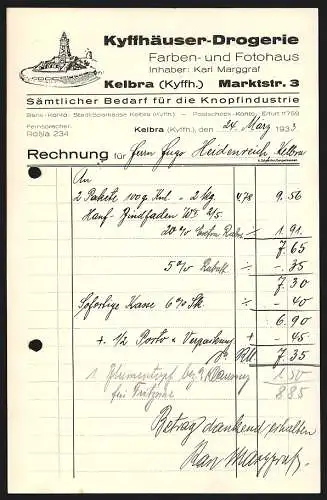 Kyffhäuser-Drogerie
Farben- und Fotohaus
Inhaber: Karl Marggraf
Kelbra (Kyffh.) Marktstr. 3
Sämtlicher Bedarf für die Knopfindustrie
Bank-Konto: Stadt-Sparkasse Kelbra (Kyffh.) — Postscheck-Konto: Erfurt 11759
Fernsprecher:
Roßla 234
Kelbra (Kyffh.), den 24. März 1933
Rechnung für Herrn Hugo Heidenreich, Kelbra
An
2 Pakete 100 g 2 kg 4,78 9.56
Hanf-Bindfaden
20 % Extra ÷ 1.91
7.65
5 % Rabatt ÷ -.35
7.30
Sofortige Kasse 6 % Sk ÷ -40
6.90
+ 1/2 Porto & Verpackung + -45
RM 7.35
1 Blumentopf 1.50
8.85
Betrag dankend erhalten
Karl Marggraf